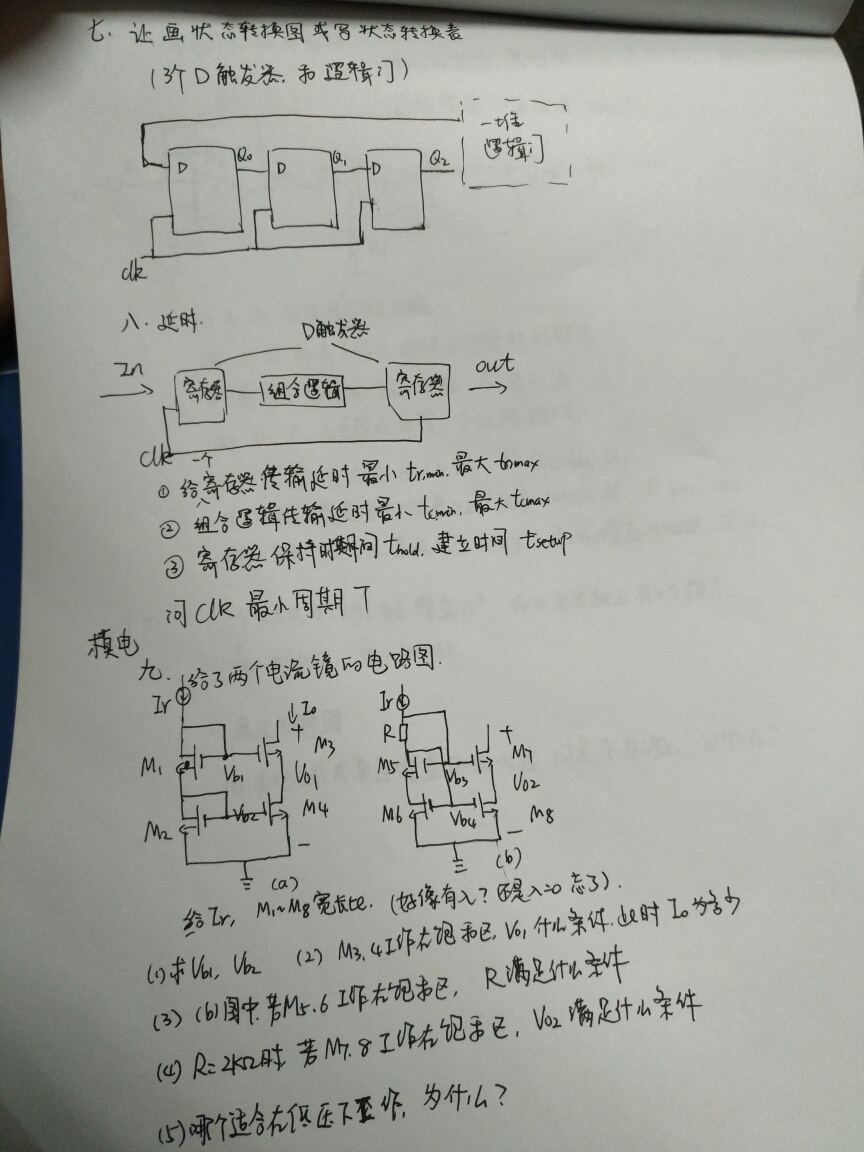 七. 让画状态转换图或写状态转换表
(3个D触发器, 和逻辑门)
一堆
逻辑门
D Q0 D Q1 D Q2
clk
八. 延时.
D触发器
In 寄存器 组合逻辑 寄存器 out
clk
① 给一个寄存器传输延时最小 tr,min, 最大 trmax
② 组合逻辑传输延时最小 tcmin, 最大 tcmax
③ 寄存器保持时期间 thold, 建立时间 tsetup
问 clk 最小周期 T
模电
九. 给了两个电流镜的电路图.
Ir Io Ir
R
M1 Vb1 + M3 Vo1 M5 Vb3 + M7 Vo2
M2 Vb2 M4 − M6 Vb4 − M8
(a) (b)
给Ir, M1~M8 宽长比. (好像有λ? 还是λ=0 忘了).
(1) 求Vb1, Vb2 (2) M3,4工作在饱和区, Vo1 什么条件. 此时 Io 为多少
(3) (b)图中. 若M5.6 工作在饱和区, R满足什么条件
(4) R=2kΩ时 若M7.8 工作在饱和区, Vo2 满足什么条件
(5) 哪个适合在低压下工作, 为什么?